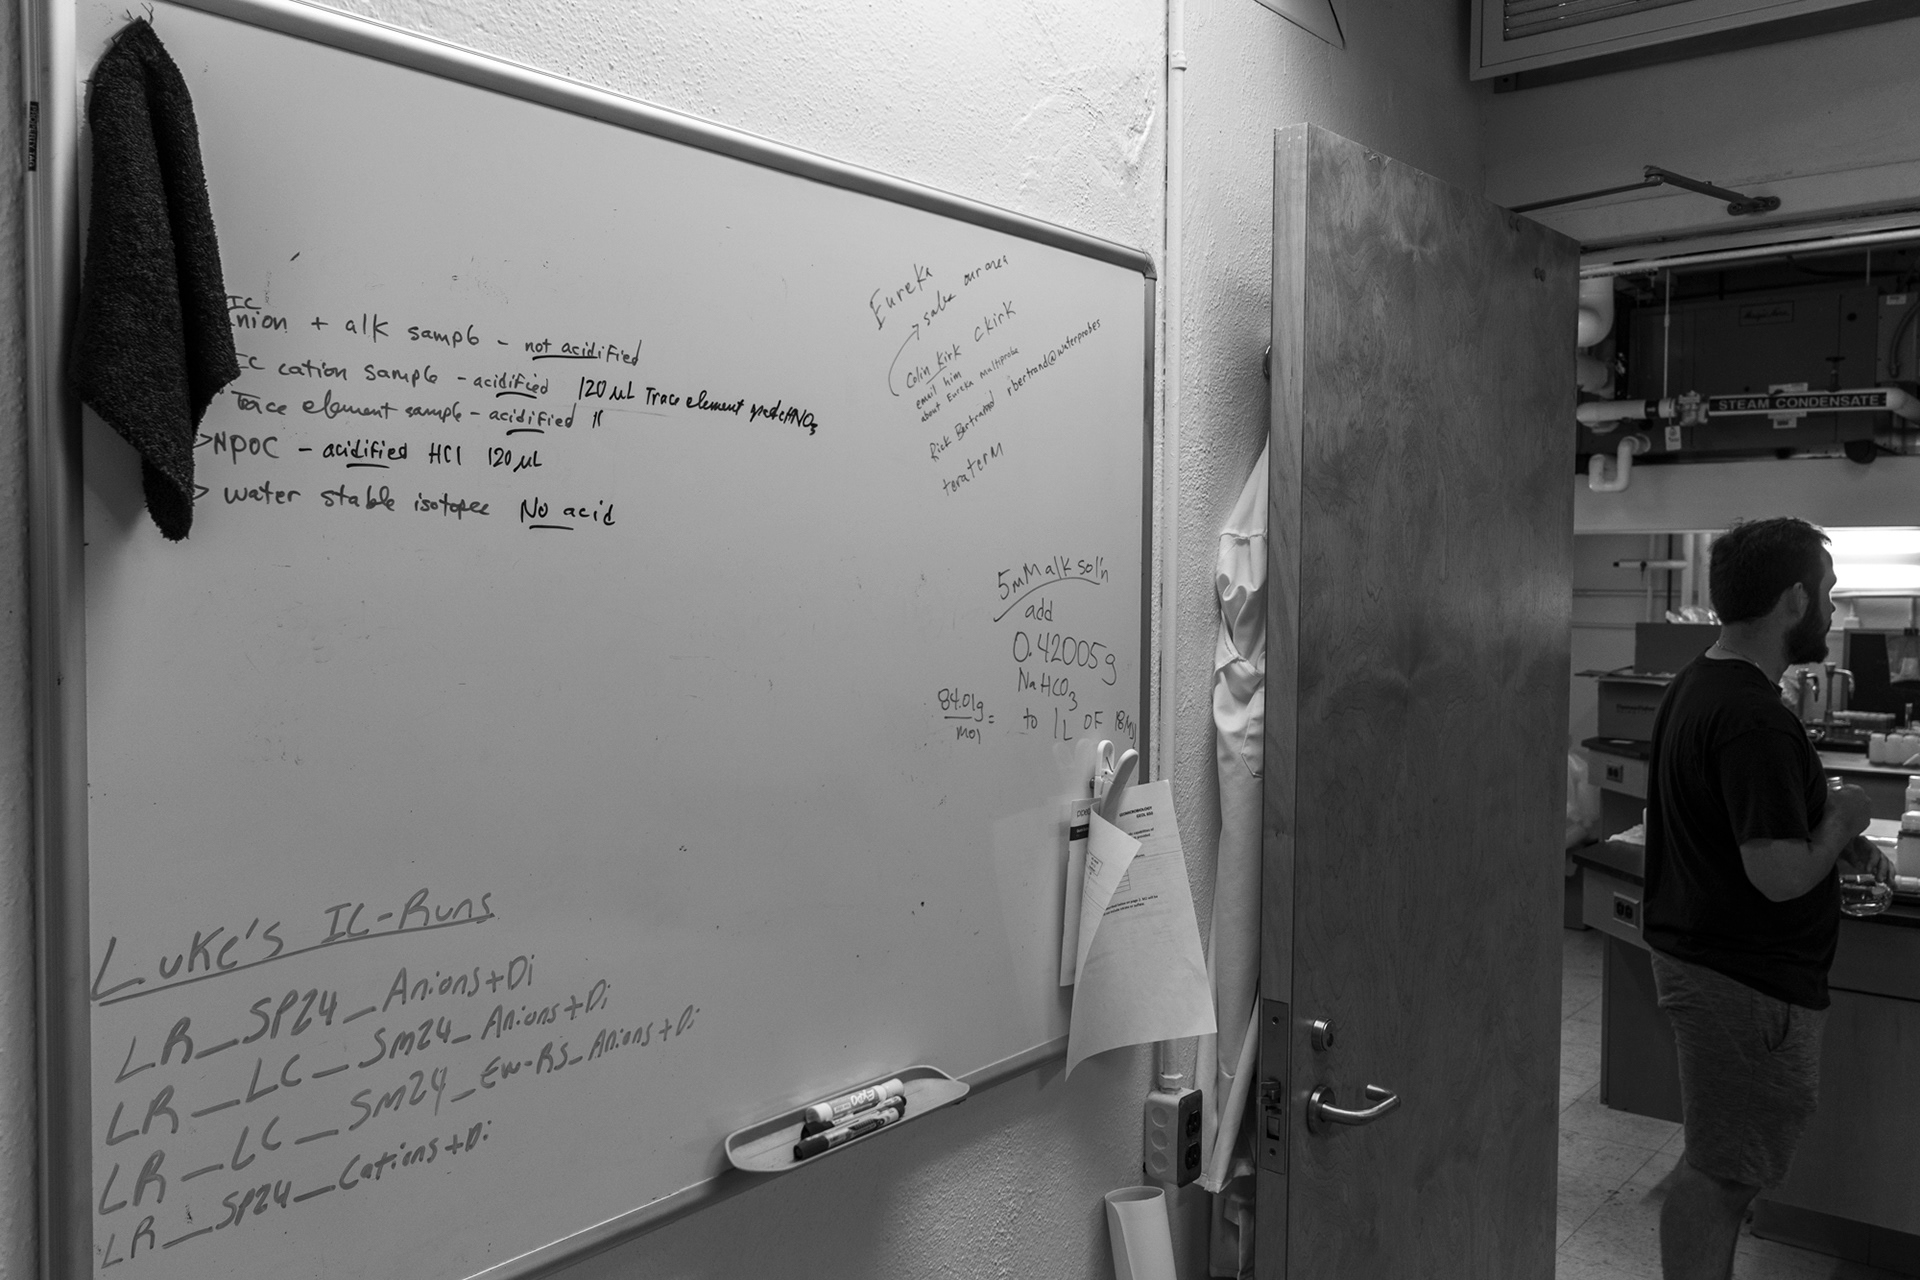 IC
Anion + alk sample - not acidified
IC cation sample - acidified 120 µL Trace element grade HNO3
Trace element sample - acidified "
>NPOC - acidified HCl 120 µL
> water stable isotopes No acid
Eureka
→ sales our area
Colin Kirk ckirk
email him
about Eureka multiprobe
Rick Bertrand rbertrand@waterprobes
teraterm
5mM alk sol'n
add
0.42005g
NaHCO3
84.01g
mol
= to 1L OF 18
Luke's IC-Runs
LR_SP24_Anions+Di
LR_LC_Sm24_Anions+Di
LR_LC_Sm24_EW-RS_Anions+Di
LR_SP24_Cations+Di
EXPO
STEAM CONDENSATE